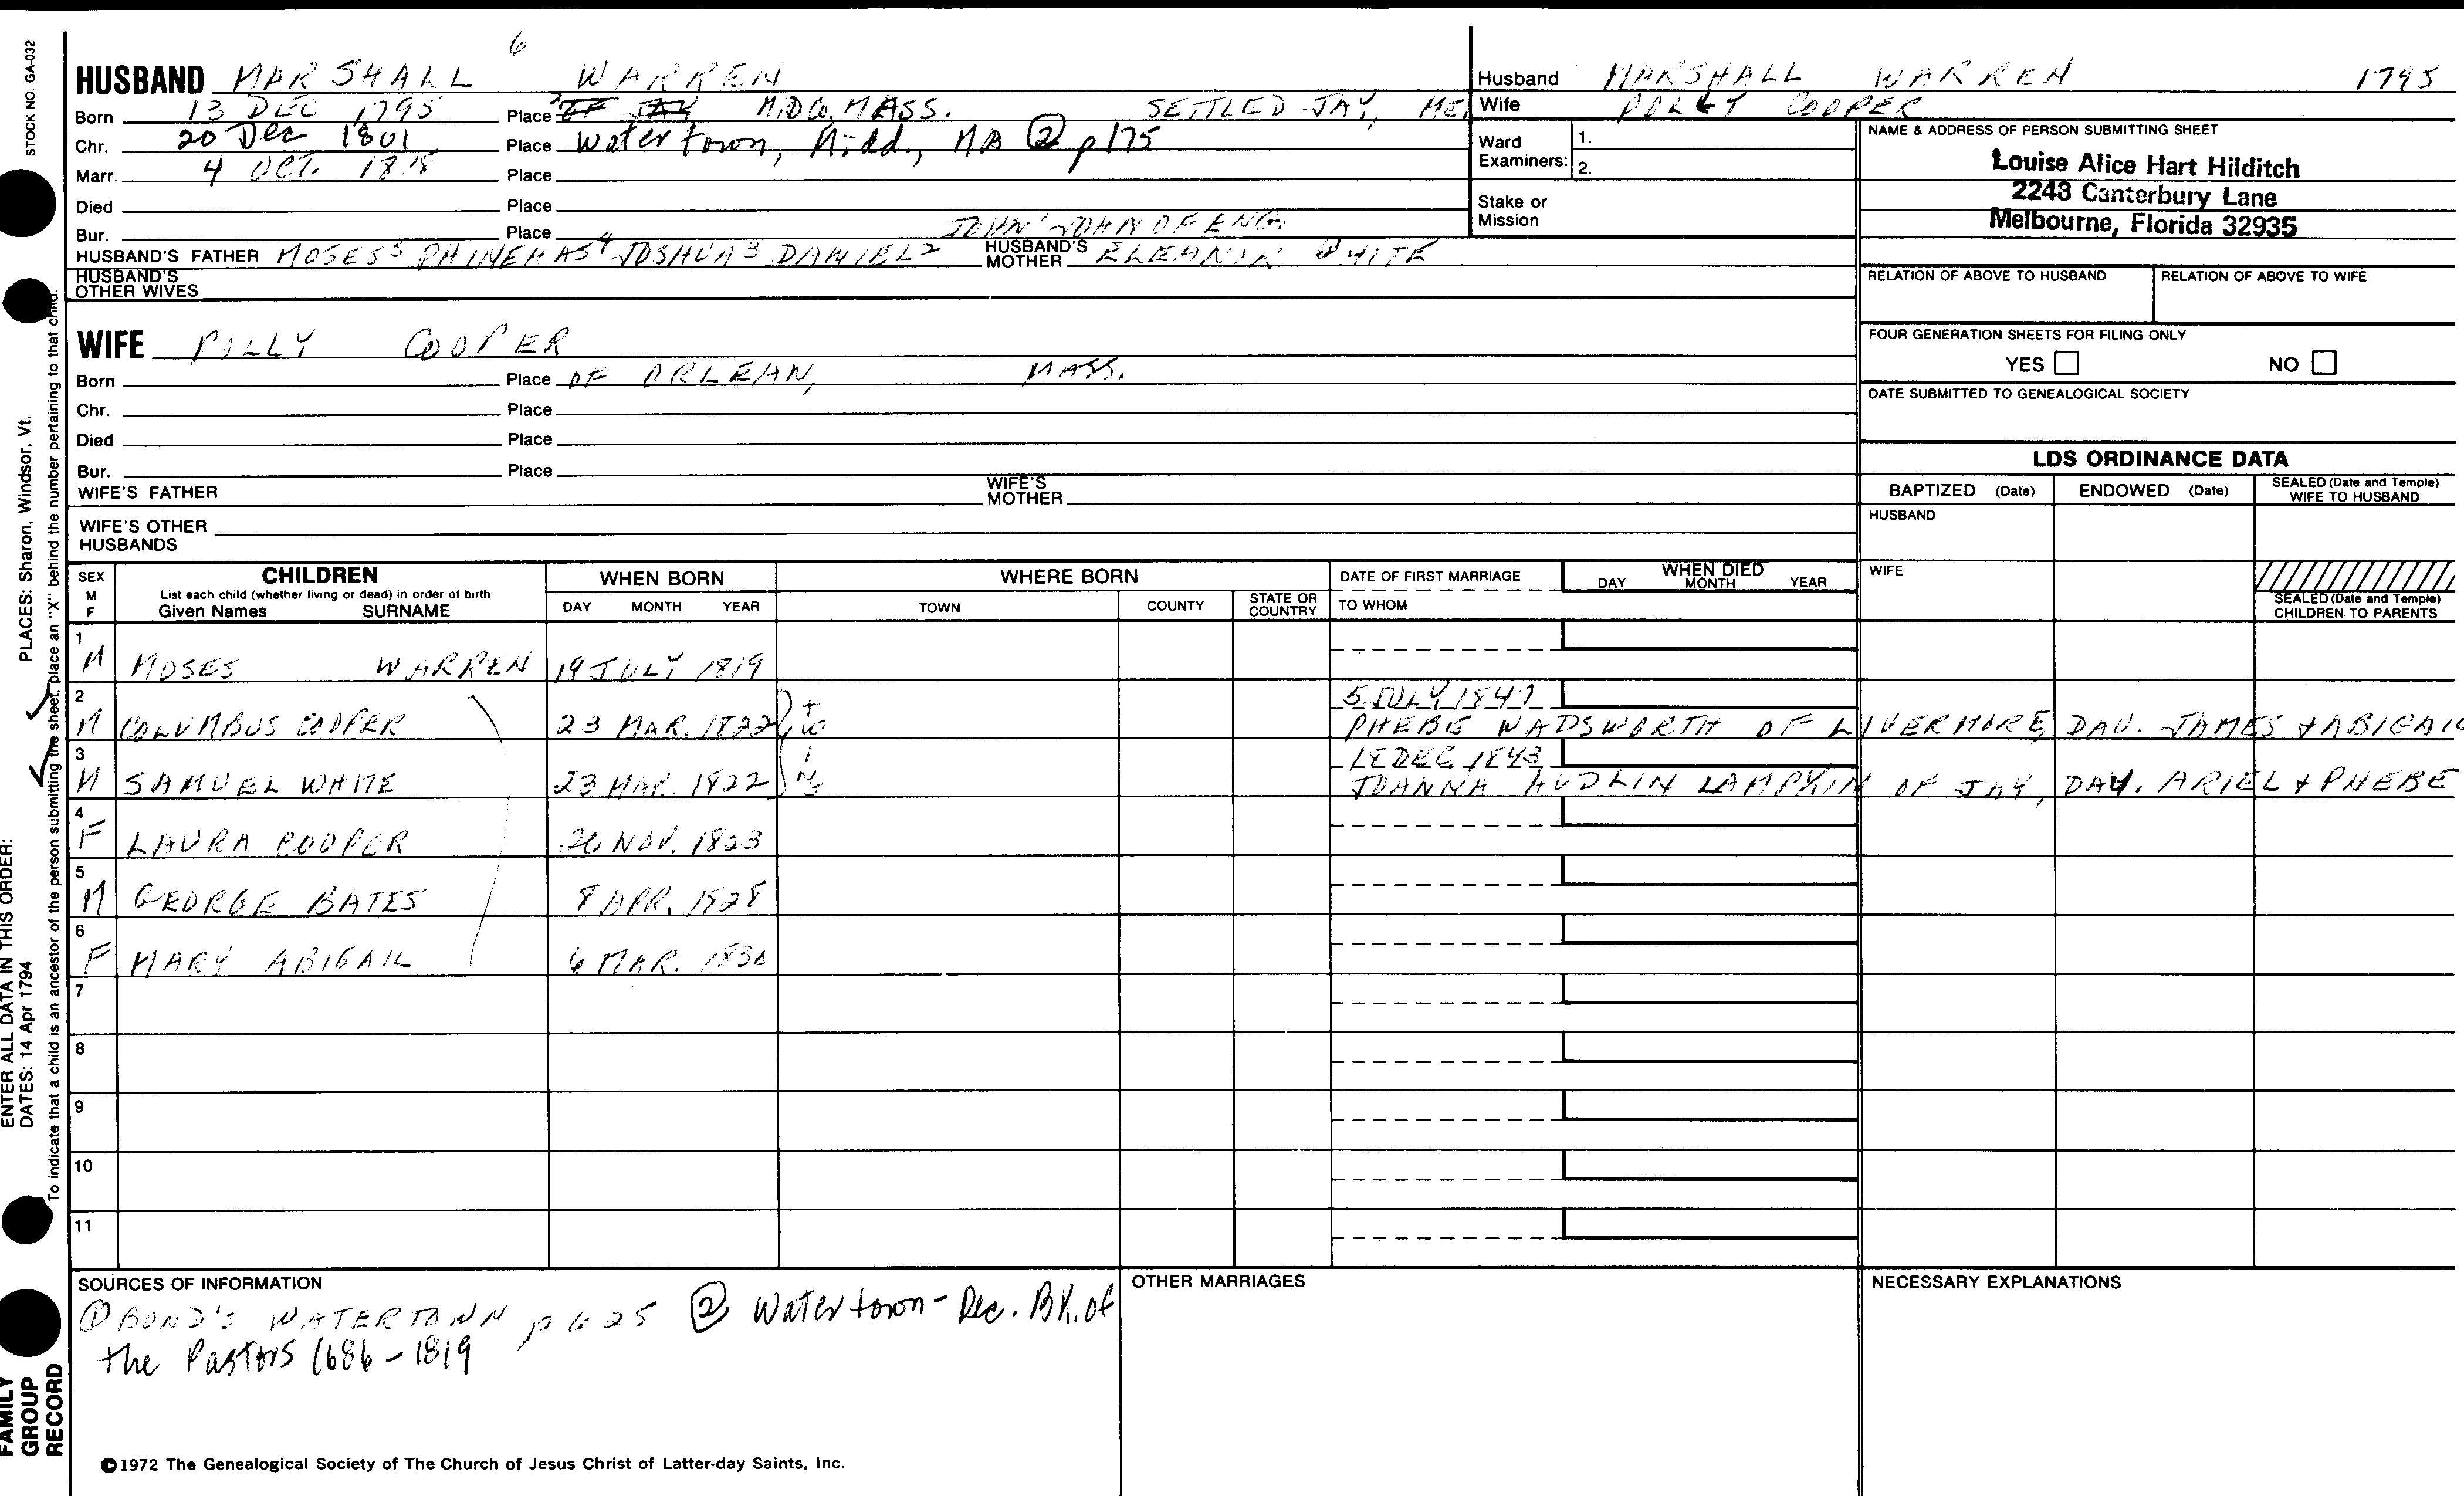 STOCK NO GA-032
6
HUSBAND MARSHALL WARREN
Born 13 DEC 1795 Place OF JAY MIDD. MASS. SETTLED JAY, ME.
Chr. 20 Dec 1801 Place Watertown, Midd., MA ② p175
Marr. 4 OCT. 1818 Place
Died Place
Bur. Place JOHN' JOHN OF ENG.
HUSBAND'S FATHER MOSES⁵ PHINEHAS⁴ JOSHUA³ DANIEL² HUSBAND'S MOTHER ELEANOR WHITE
HUSBAND'S OTHER WIVES
WIFE POLLY COOPER
Born Place OF ORLEAN, MASS.
Chr. Place
Died Place
Bur. Place
WIFE'S FATHER WIFE'S MOTHER
WIFE'S OTHER HUSBANDS
Husband MARSHALL WARREN 1795
Wife POLLY COOPER
Ward Examiners: 1. 2.
Stake or Mission
NAME & ADDRESS OF PERSON SUBMITTING SHEET
Louise Alice Hart Hilditch
2248 Canterbury Lane
Melbourne, Florida 32935
RELATION OF ABOVE TO HUSBAND RELATION OF ABOVE TO WIFE
FOUR GENERATION SHEETS FOR FILING ONLY
YES NO
DATE SUBMITTED TO GENEALOGICAL SOCIETY
LDS ORDINANCE DATA
BAPTIZED (Date) ENDOWED (Date) SEALED (Date and Temple) WIFE TO HUSBAND
HUSBAND
WIFE
SEALED (Date and Temple) CHILDREN TO PARENTS
SEX M F CHILDREN WHEN BORN WHERE BORN DATE OF FIRST MARRIAGE WHEN DIED
List each child (whether living or dead) in order of birth
Given Names SURNAME DAY MONTH YEAR TOWN COUNTY STATE OR COUNTRY TO WHOM DAY MONTH YEAR
1 M MOSES WARREN 19 JULY 1819
2 M COLUMBUS COOPER 23 MAR. 1822 TWINS 5 JULY 1847
PHEBE WADSWORTH OF LIVERMORE, DAU. JAMES & ABIGAIL
3 M SAMUEL WHITE 23 MAR. 1822 18 DEC 1843
JOANNA AUDLIN LAMPKIN OF JAY, DAU. ARIEL & PHEBE
4 F LAURA COOPER 26 NOV. 1823
5 M GEORGE BATES 8 APR. 1828
6 F MARY ABIGAIL 6 MAR. 1830
7
8
9
10
11
SOURCES OF INFORMATION
① BOND'S WATERTOWN p 625 ② Watertown - Rec. Bk. of
the Pastors 1686 - 1819
OTHER MARRIAGES
NECESSARY EXPLANATIONS
©1972 The Genealogical Society of The Church of Jesus Christ of Latter-day Saints, Inc.
ENTER ALL DATA IN THIS ORDER:
DATES: 14 Apr 1794 PLACES: Sharon, Windsor, Vt.
To indicate that a child is an ancestor of the person submitting the sheet, place an "X" behind the number pertaining to that child.
FAMILY
GROUP
RECORD